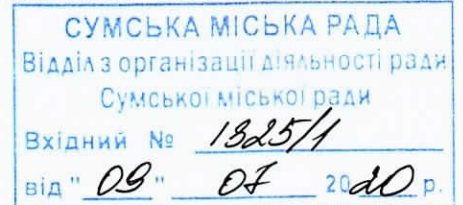 СУМСЬКА МІСЬКА РАДА
Відділ з організації діяльності ради
Сумської міської ради
Вхідний № 1325/1
від " 09 " 07 2020 р.